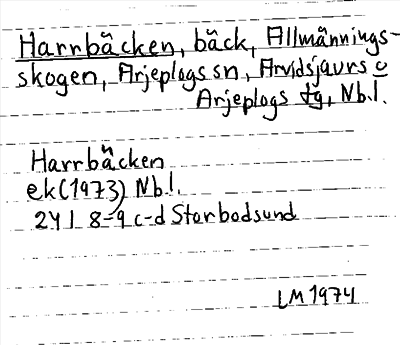 Harrbäcken, bäck, Allmännings-
skogen, Arjeplogs sn, Arvidsjaurs o
Arjeplogs tg, Nb.l.
Harrbäcken
ek (1973) Nb.l.
24 I 8-9 c-d Storbodsund
LM 1974